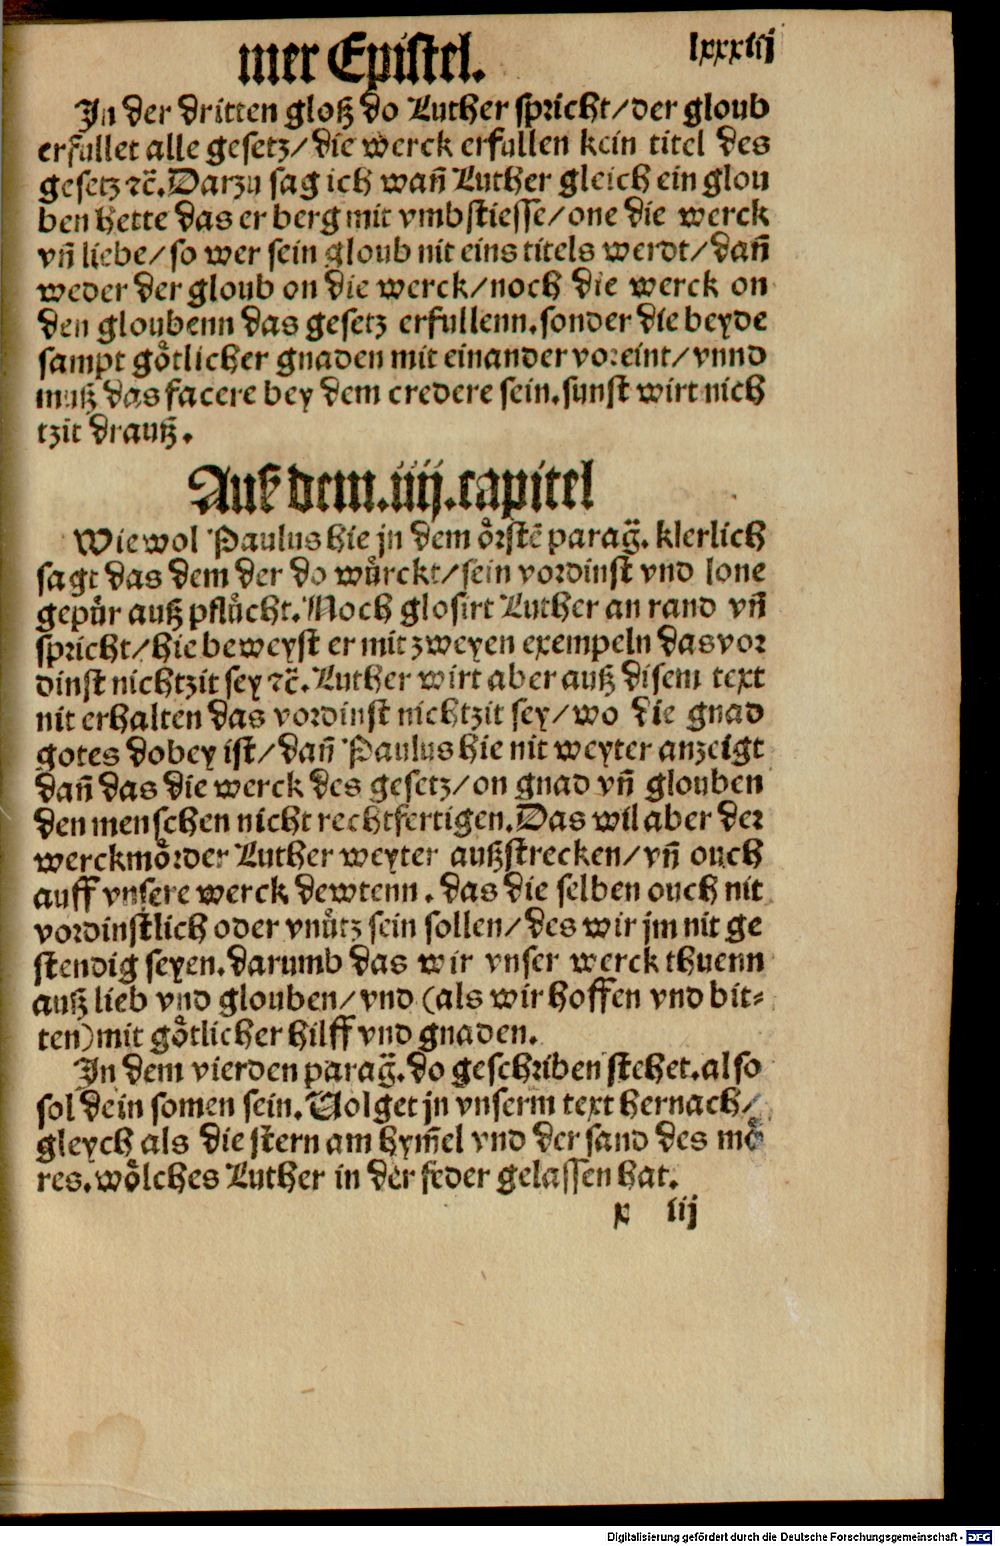 mer Epistel. lxxxiij
In der dritten gloß do Luther spricht/der gloub
erfullet alle gesetz/die werck erfullen kein titel des
gesetz ⁊c̃. Darzu sag ich wañ Luther gleich ein glou
ben hette das er berg mit vmbstiesse/one die werck
vñ liebe/so wer sein gloub nit eins titels werdt/dañ
weder der gloub on die werck/noch die werck on
den gloubenn das gesetz erfullenn.sonder die beyde
sampt goͤtlicher gnaden mit einander voreint/vnnd
muß das facere bey dem credere sein.sunst wirt nich
tzit drauß.
Auß dem.iiij.capitel
Wiewol Paulus hie jn dem oͤrstẽ parag̃. klerlich
sagt das dem der do wuͤrckt/sein vordinst vnd lone
gepuͤr auß pfluͤcht. Noch glosirt Luther an rand vñ
spricht/hie beweyst er mit zweyen exempeln das vor
dinst nichtzit sey ⁊c̃. Luther wirt aber auß disem text
nit erhalten das vordinst nichtzit sey/wo die gnad
gotes dobey ist/dañ Paulus hie nit weyter anzeigt
dañ das die werck des gesetz/on gnad vñ glouben
den menschen nicht rechtfertigen. Das wil aber der
werckmoͤrder Luther weyter außstrecken/vñ ouch
auff vnsere werck dewtenn. das die selben ouch nit
vordinstlich oder vnuͤtz sein sollen/des wir jm nit ge
stendig seyen.darumb das wir vnser werck thuenn
auß lieb vnd glouben/vnd (als wir hoffen vnd bit⸗
ten) mit goͤtlicher hilff vnd gnaden.
In dem vierden parag̃. do geschriben stehet.also
sol dein somen sein. Volget jn vnserm text hernach/
gleych als die stern am hym̃el vnd der sand des moͤ
res.woͤlches Luther in der feder gelassen hat.
x iij
Digitalisierung gefördert durch die Deutsche Forschungsgemeinschaft - DFG